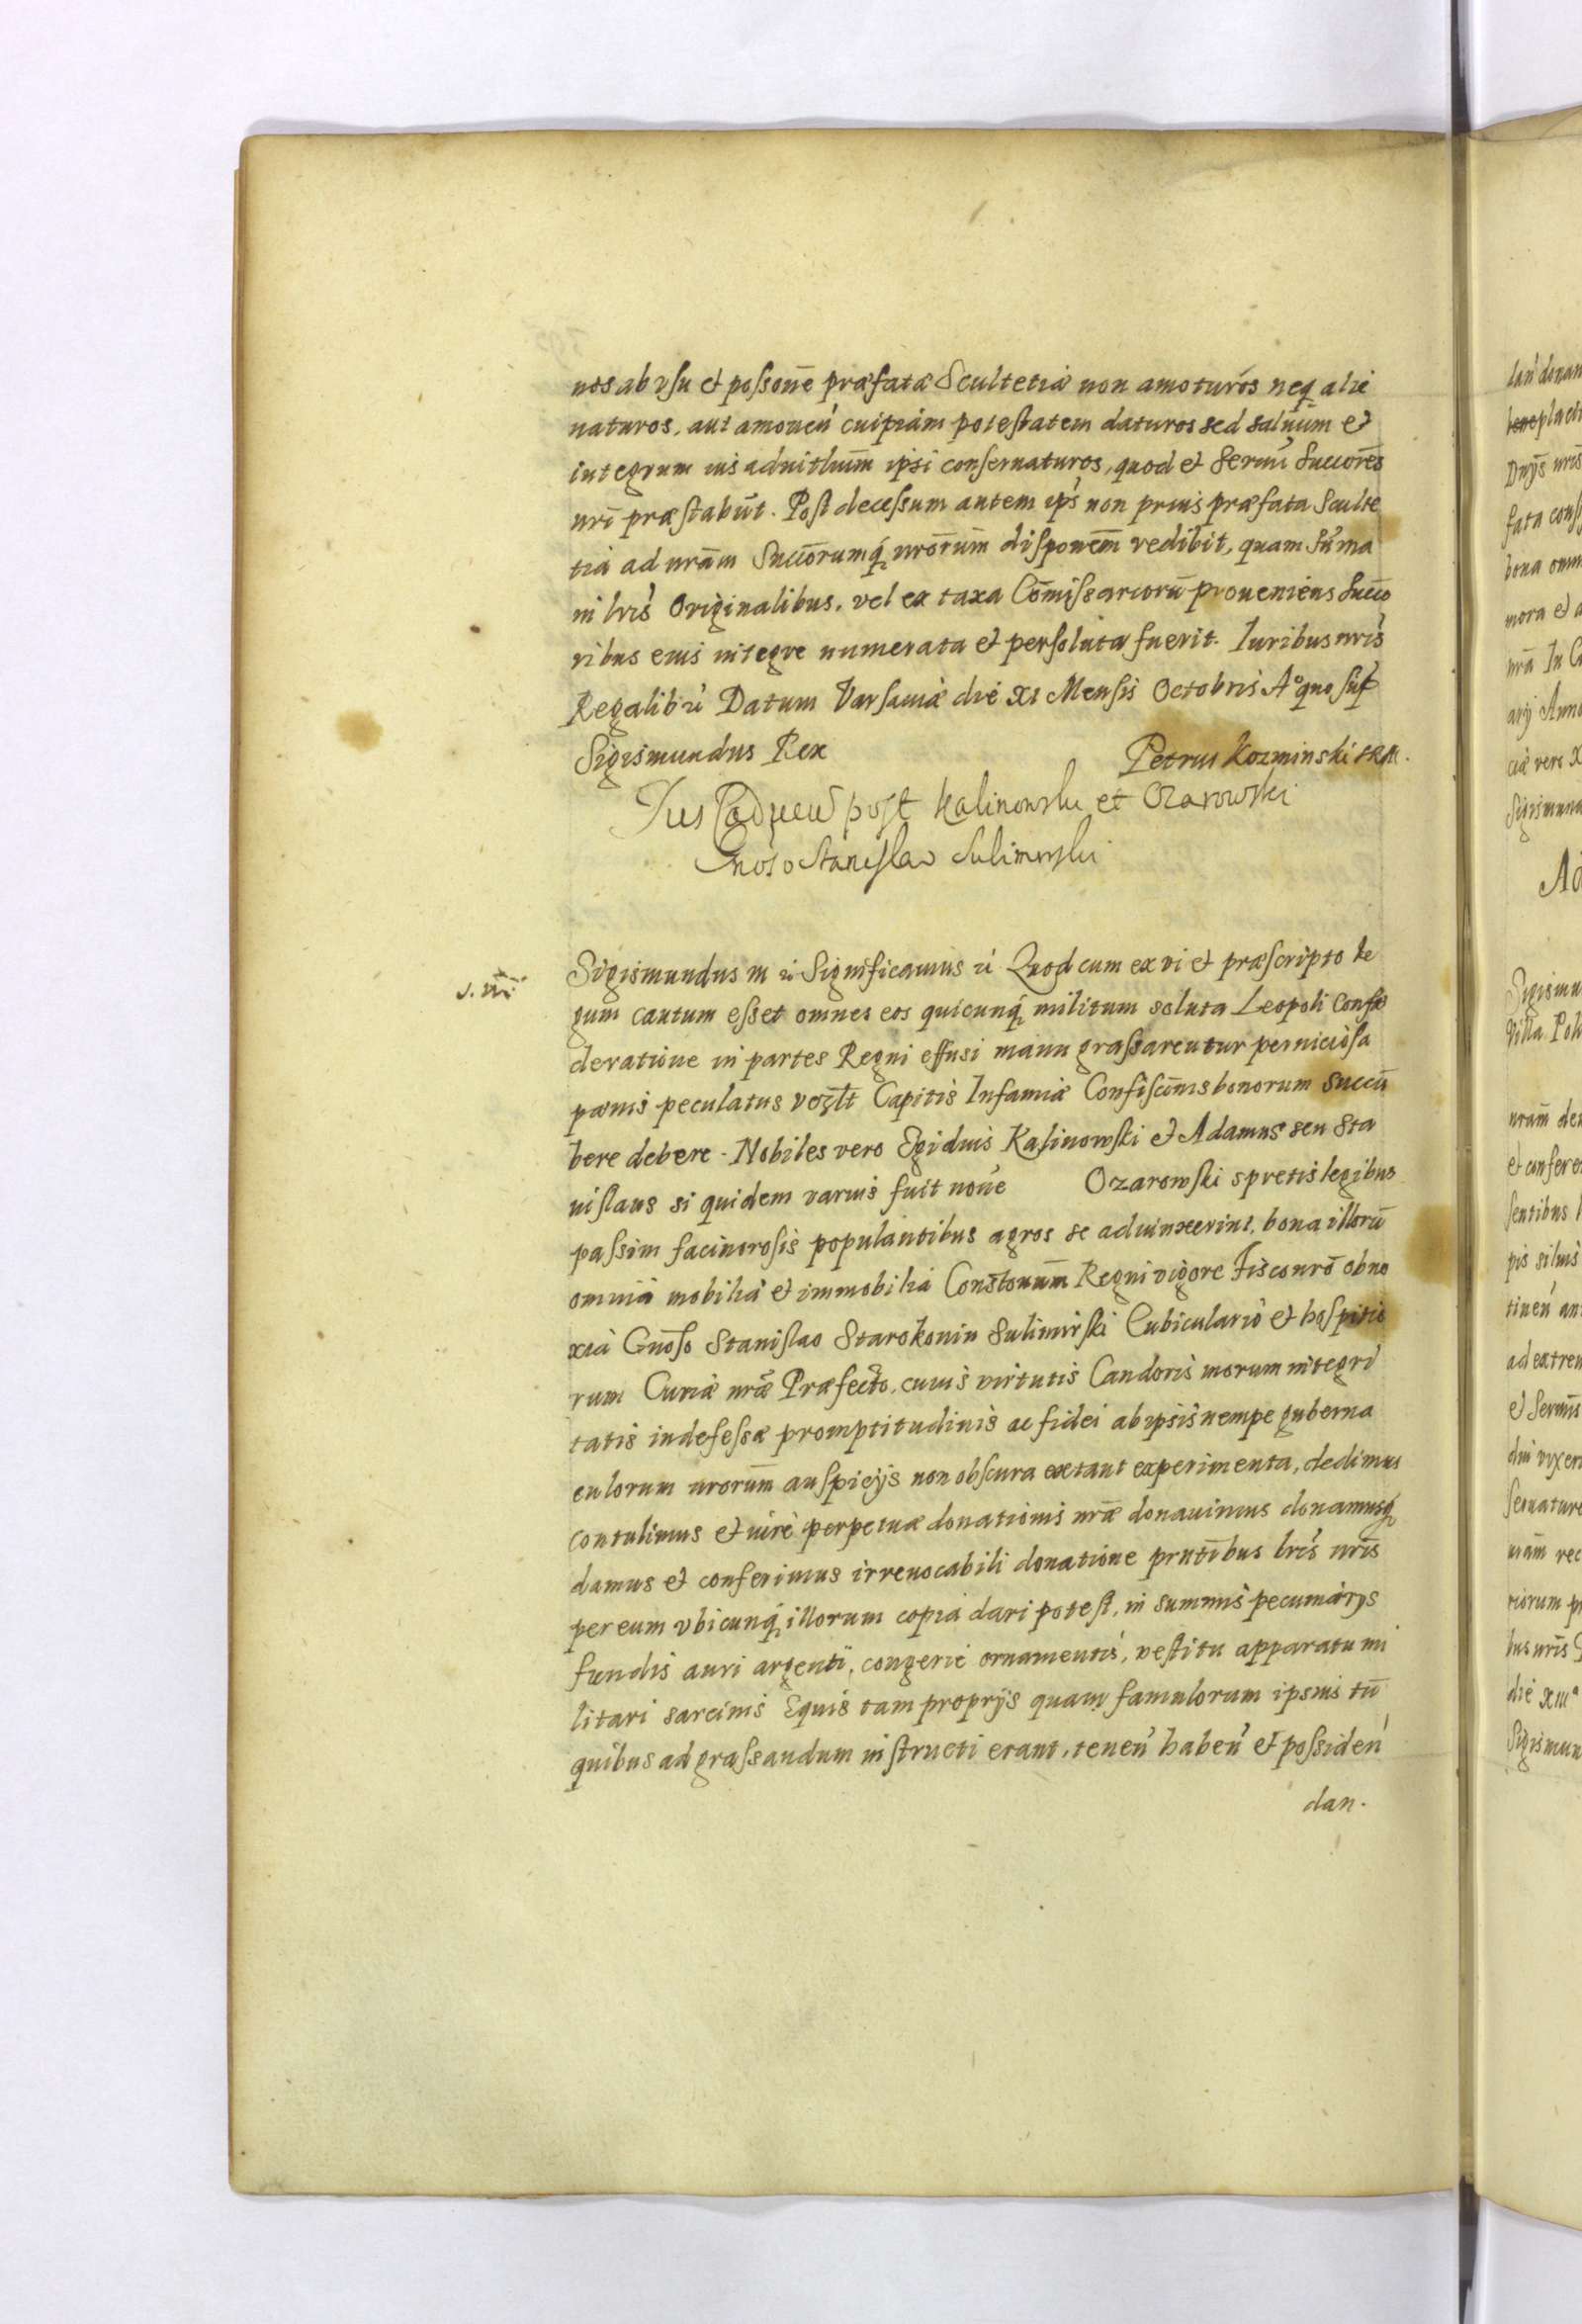 nos ab vsu et possone præfatæ Scultetiæ non amoturos neq alie
naturos, aut amouen cuipiam potestatem daturos sed saluum et
integrum ius aduitlium ipsi conseruaturos, quod et Sermi Succores
nri præstabut. Post decessum autem ips non prius præfata Sculte
tia ad nram Succorumq nrorum disponem redibit, quam suma
in lris Originalibus, vel ex taxa Comissariorum proueniens Succo
ribus eius integre numerata et persoluta fuerit. Iuribus nris
Regalib Datum Varsauiæ die XI Mensis Octobris Ao quo sup
Sigismundus Rex Petrus Kozminski SRM.
Ius Caducu post Kalinowski et Ozarowski
Gnoso Stanislao Sulimirski
Sigismundus III Significamus Quod cum ex vi et præscripto le
gum cautum esset omnes eos quicunq militum soluta Leopoli Confœ
deratione in partes Regni effusi manu grassarentur perniciosa
pœnis peculatus Capitis Infamiæ Confiscnis bonorum succu
bere debere. Nobiles vero Egidius Kalinowski et Adamus seu Sta
nislaus si quidem varius fuit noue Ozarowski spretis legibus
passim facinorosis populantibus agros se adiunxerint, bona illoru
omnia mobilia et immobilia Constonum Regni vigore Fisco nro obno
xia Gnoso Stanislao Starokonin Sulimirski Cubiculario et hospitio
rum Curiæ nræ Præfecto, cuius virtutis Candoris morum integri
tatis indefessæ promptitudinis ac fidei ab ipsis nempe guberna
culorum nrorum auspicijs non obscura extant experimenta, dedimus
contulimus et iure perpetuæ donationis nræ donauimus donamusq
damus et conferimus irreuocabili donatione prntibus lris nris
per eum vbicunq illorum copia dari potest, in summis pecuniarijs
fundis auri argenti, congerie ornamentis, vestitu apparatu mi
litari sarcinis Equis tam proprijs quam famulorum ipsius tu
quibus ad grassandum instructi erant, tenen haben et possiden
dan.